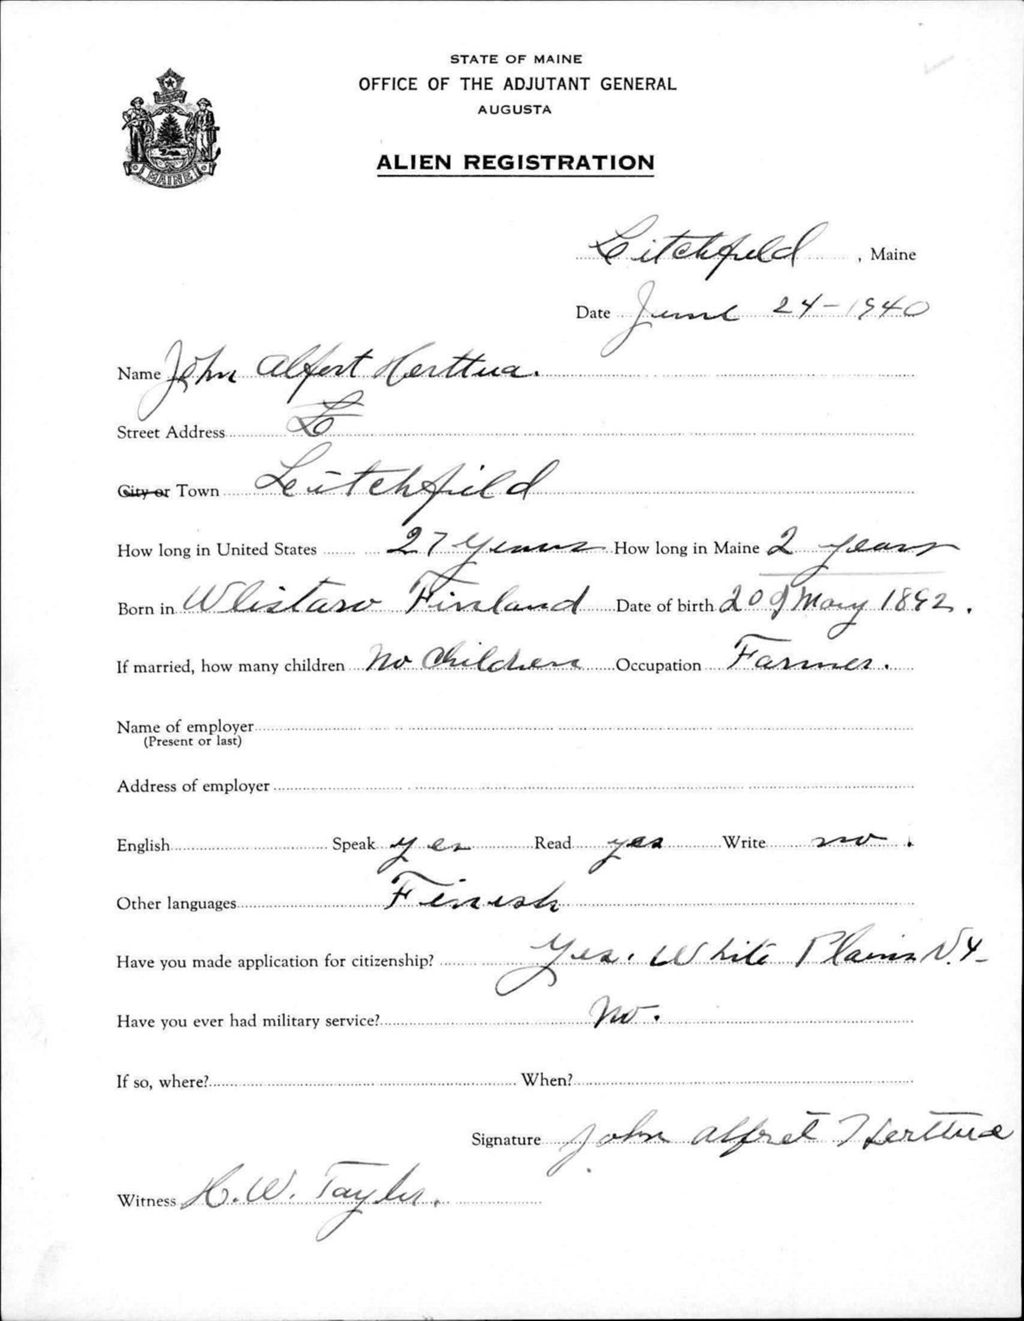 STATE OF MAINE
OFFICE OF THE ADJUTANT GENERAL
AUGUSTA
ALIEN REGISTRATION
MAINE
Litchfield, Maine
Date June 24-1940
Name John Alfert Herttua.
Street Address
City or Town Litchfield
How long in United States 27 years How long in Maine 2 years
Born in Ulistaro Finland Date of birth 20 of May 1892.
If married, how many children No Children Occupation Farmer.
Name of employer
(Present or last)
Address of employer
English Speak yes Read yes Write no.
Other languages Finish
Have you made application for citizenship? Yes. White Plains N.Y-
Have you ever had military service? No.
If so, where? When?
Signature John Alfret Herttua
Witness H.W. Taylor.